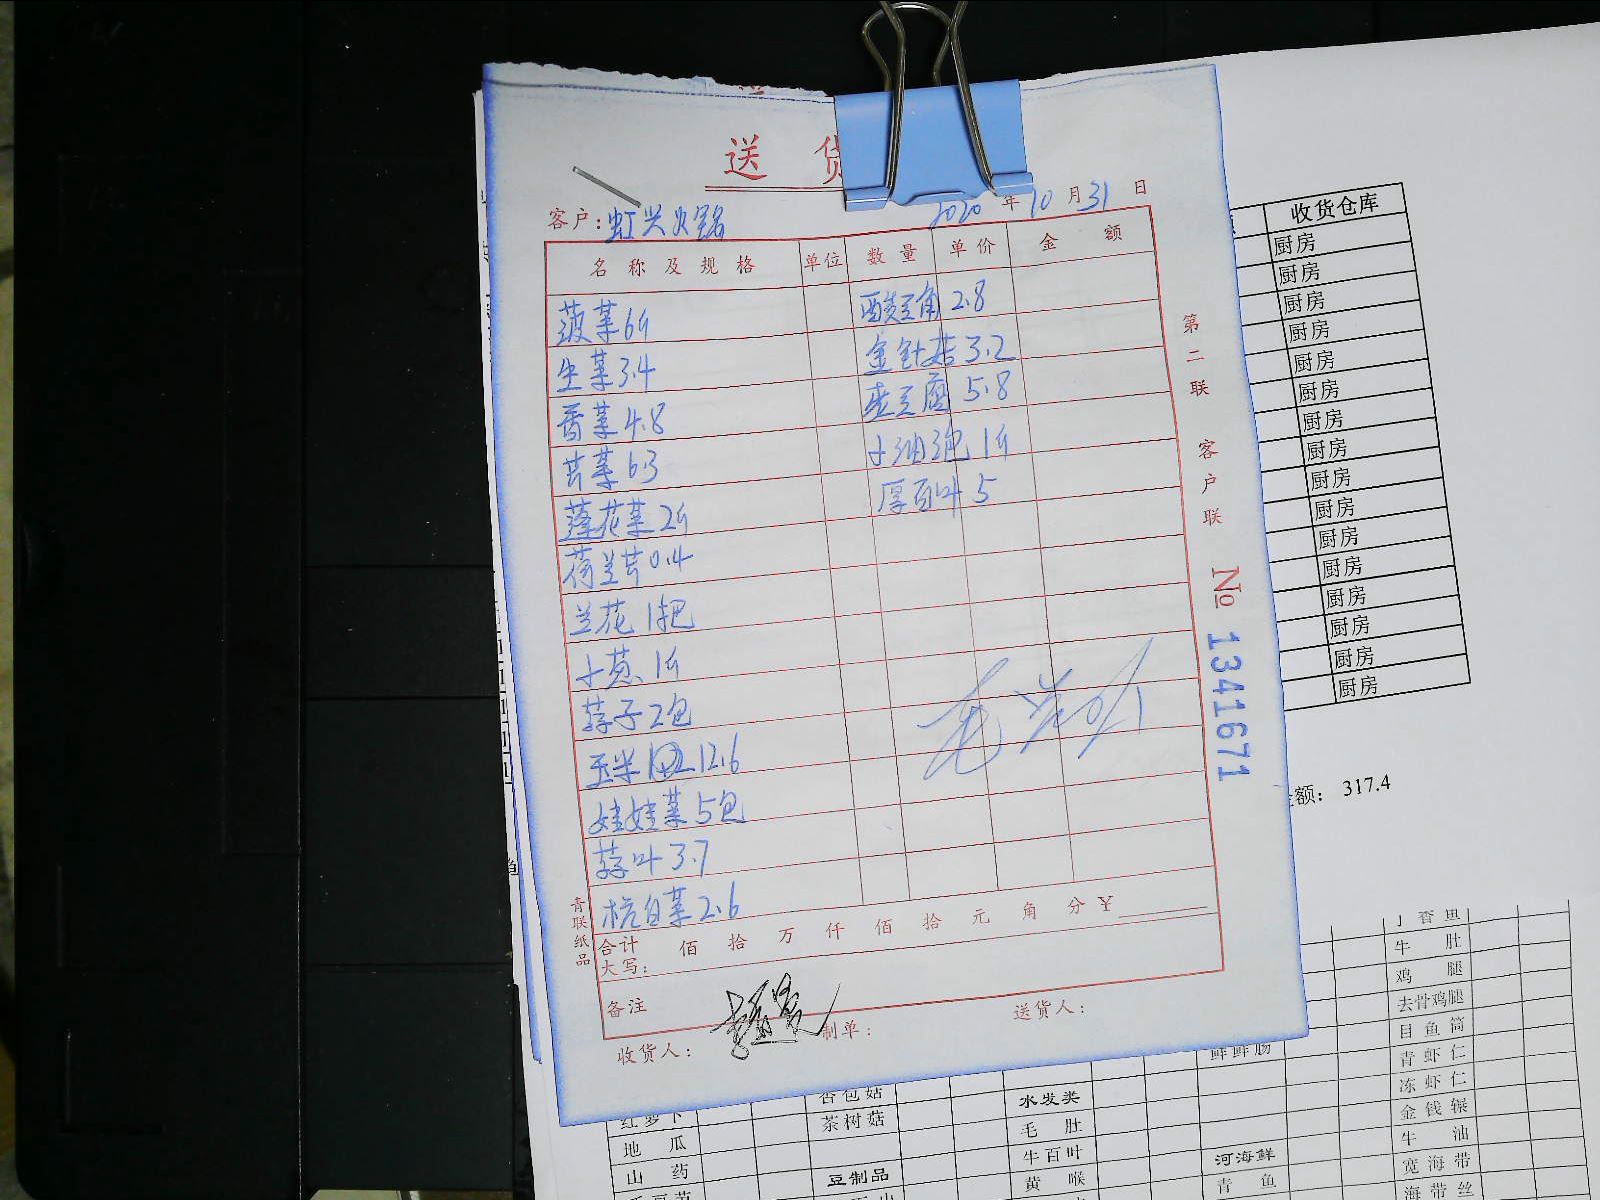 送 货
客户: 虹兴火锅 2020 年 10 月 31 日
名称及规格 单位 数量 单价 金额
菠菜6斤 酸豆角 2.8
生菜3.4 金针菇 3.2
香菜4.8 老豆腐 5.8
芹菜6.3 小油泡 1斤
蓬花菜2斤 厚百叶 5
荷兰芹0.4
兰花1把
小葱1斤
荪子2包
玉米 12.6
娃娃菜5包
荪叶3.7
杭白菜2.6
合计
大写: 佰 拾 万 仟 佰 拾 元 角 分 ¥
备注
收货人: 制单: 送货人:
青联纸品
第二联 客户联
No 1341671
收货仓库
厨房
厨房
厨房
厨房
厨房
厨房
厨房
厨房
厨房
厨房
厨房
厨房
厨房
厨房
厨房
厨房
额: 317.4
牛肚
鸡腿
去骨鸡腿
目鱼筒
青虾仁
冻虾仁
金钱辗
牛油
宽海带
海带丝
鲜鲜肠
河海鲜
青鱼
水发类
毛肚
牛百叶
黄喉
杏包菇
茶树菇
豆制品
红萝卜
地瓜
山药